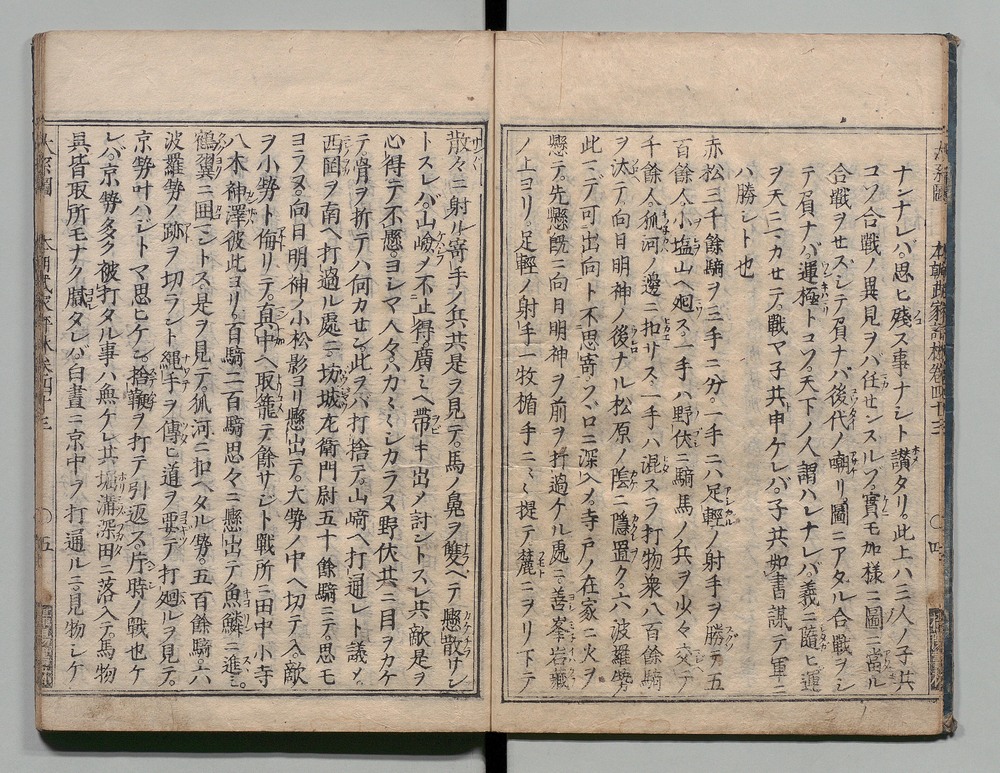 ナンナレバ。思ヒ殘ス事ナシト讃タリ。此上ハ三人ノ子共
コソ合戰ノ異見ヲバ任センスルゾ。實モ加樣ニ圖ニ當ル
合戰ヲセスシテ負ナバ後代ノ嘲リ圖ニアタル合戰ヲシ
テ負ナバ運極トコソ。天下ノ人謂ハレナレバ。義ニ隨ヒ運
ヲ天ニマカセテ戰マ子共申ケレバ。子共如書謀テ軍ニ
ハ勝シト也
赤松三千餘騎ヲ三手ニ分。一手ニハ足輕ノ射手ヲ勝テ五
百餘人小塩山ヘ廻ス。一手ハ野伏ニ騎馬ノ兵ヲ少々交テ
千餘人狐河ノ邊ニ扣サス。一手ハ混スラ打物衆八百餘騎
ヲ汰テ。向日明神ノ後ナル松原ノ陰ニ隱置ク。六波羅勢
此ニテ可出向ト不思寄。ソヾロニ深入〆。寺戸ノ在家ニ火ヲ
懸テ。先懸既ニ向日明神ヲ前ヲ打過ケル處ニ。善峯岩藏
ノ上ヨリ。足輕ノ射手一枚楯手ニ〳〵提テ麓ニヲリ下テ
散々ニ射ル寄手ノ兵共是ヲ見テ。馬ノ鼻ヲ雙ベテ懸散サン
トスレバ。山嶮〆不止得。廣ミヘ帶キ出〆討ントスレ共敵是ヲ
心得テ不懸。ヨシマ人々ハカ〳〵シカラヌ野伏共ニ目ヲカケ
テ。骨ヲ折テハ何カセン此ヲバ打捨テ。山崎ヘ打通レト議〆。
西國ヲ南ヘ打過ル處ニ。坊城左衛門尉五十餘騎ニテ。思モ
ヨラヌ。向日明神ノ小松影ヨリ懸出テ。大勢ノ中ヘ切テ入。敵
ヲ小勢ト侮リテ。眞中ヘ取籠テ。餘サジト戰所ニ田中小寺
八木神澤彼此ヨリ。百騎二百騎思々ニ懸出テ魚鱗ニ進。
鶴翼ニ囲ントス。是ヲ見テ狐河ニ扣ヘタル勢。五百餘騎。六
波羅勢ノ跡ヲ切ラント繩手ヲ傳ヒ道ヲ要テ打廻ルヲ見テ。
京勢叶ハジトマ思ヒケン。捨鞭ヲ打テ引返ス。片時ノ戰也ケ
レバ。京勢多ク被打タル事ハ無ケレ共。堀溝深田ニ落入テ。馬物
具皆取所モナク膩タレバ。白晝ニ京中ヲ打通ルニ。見物シケ